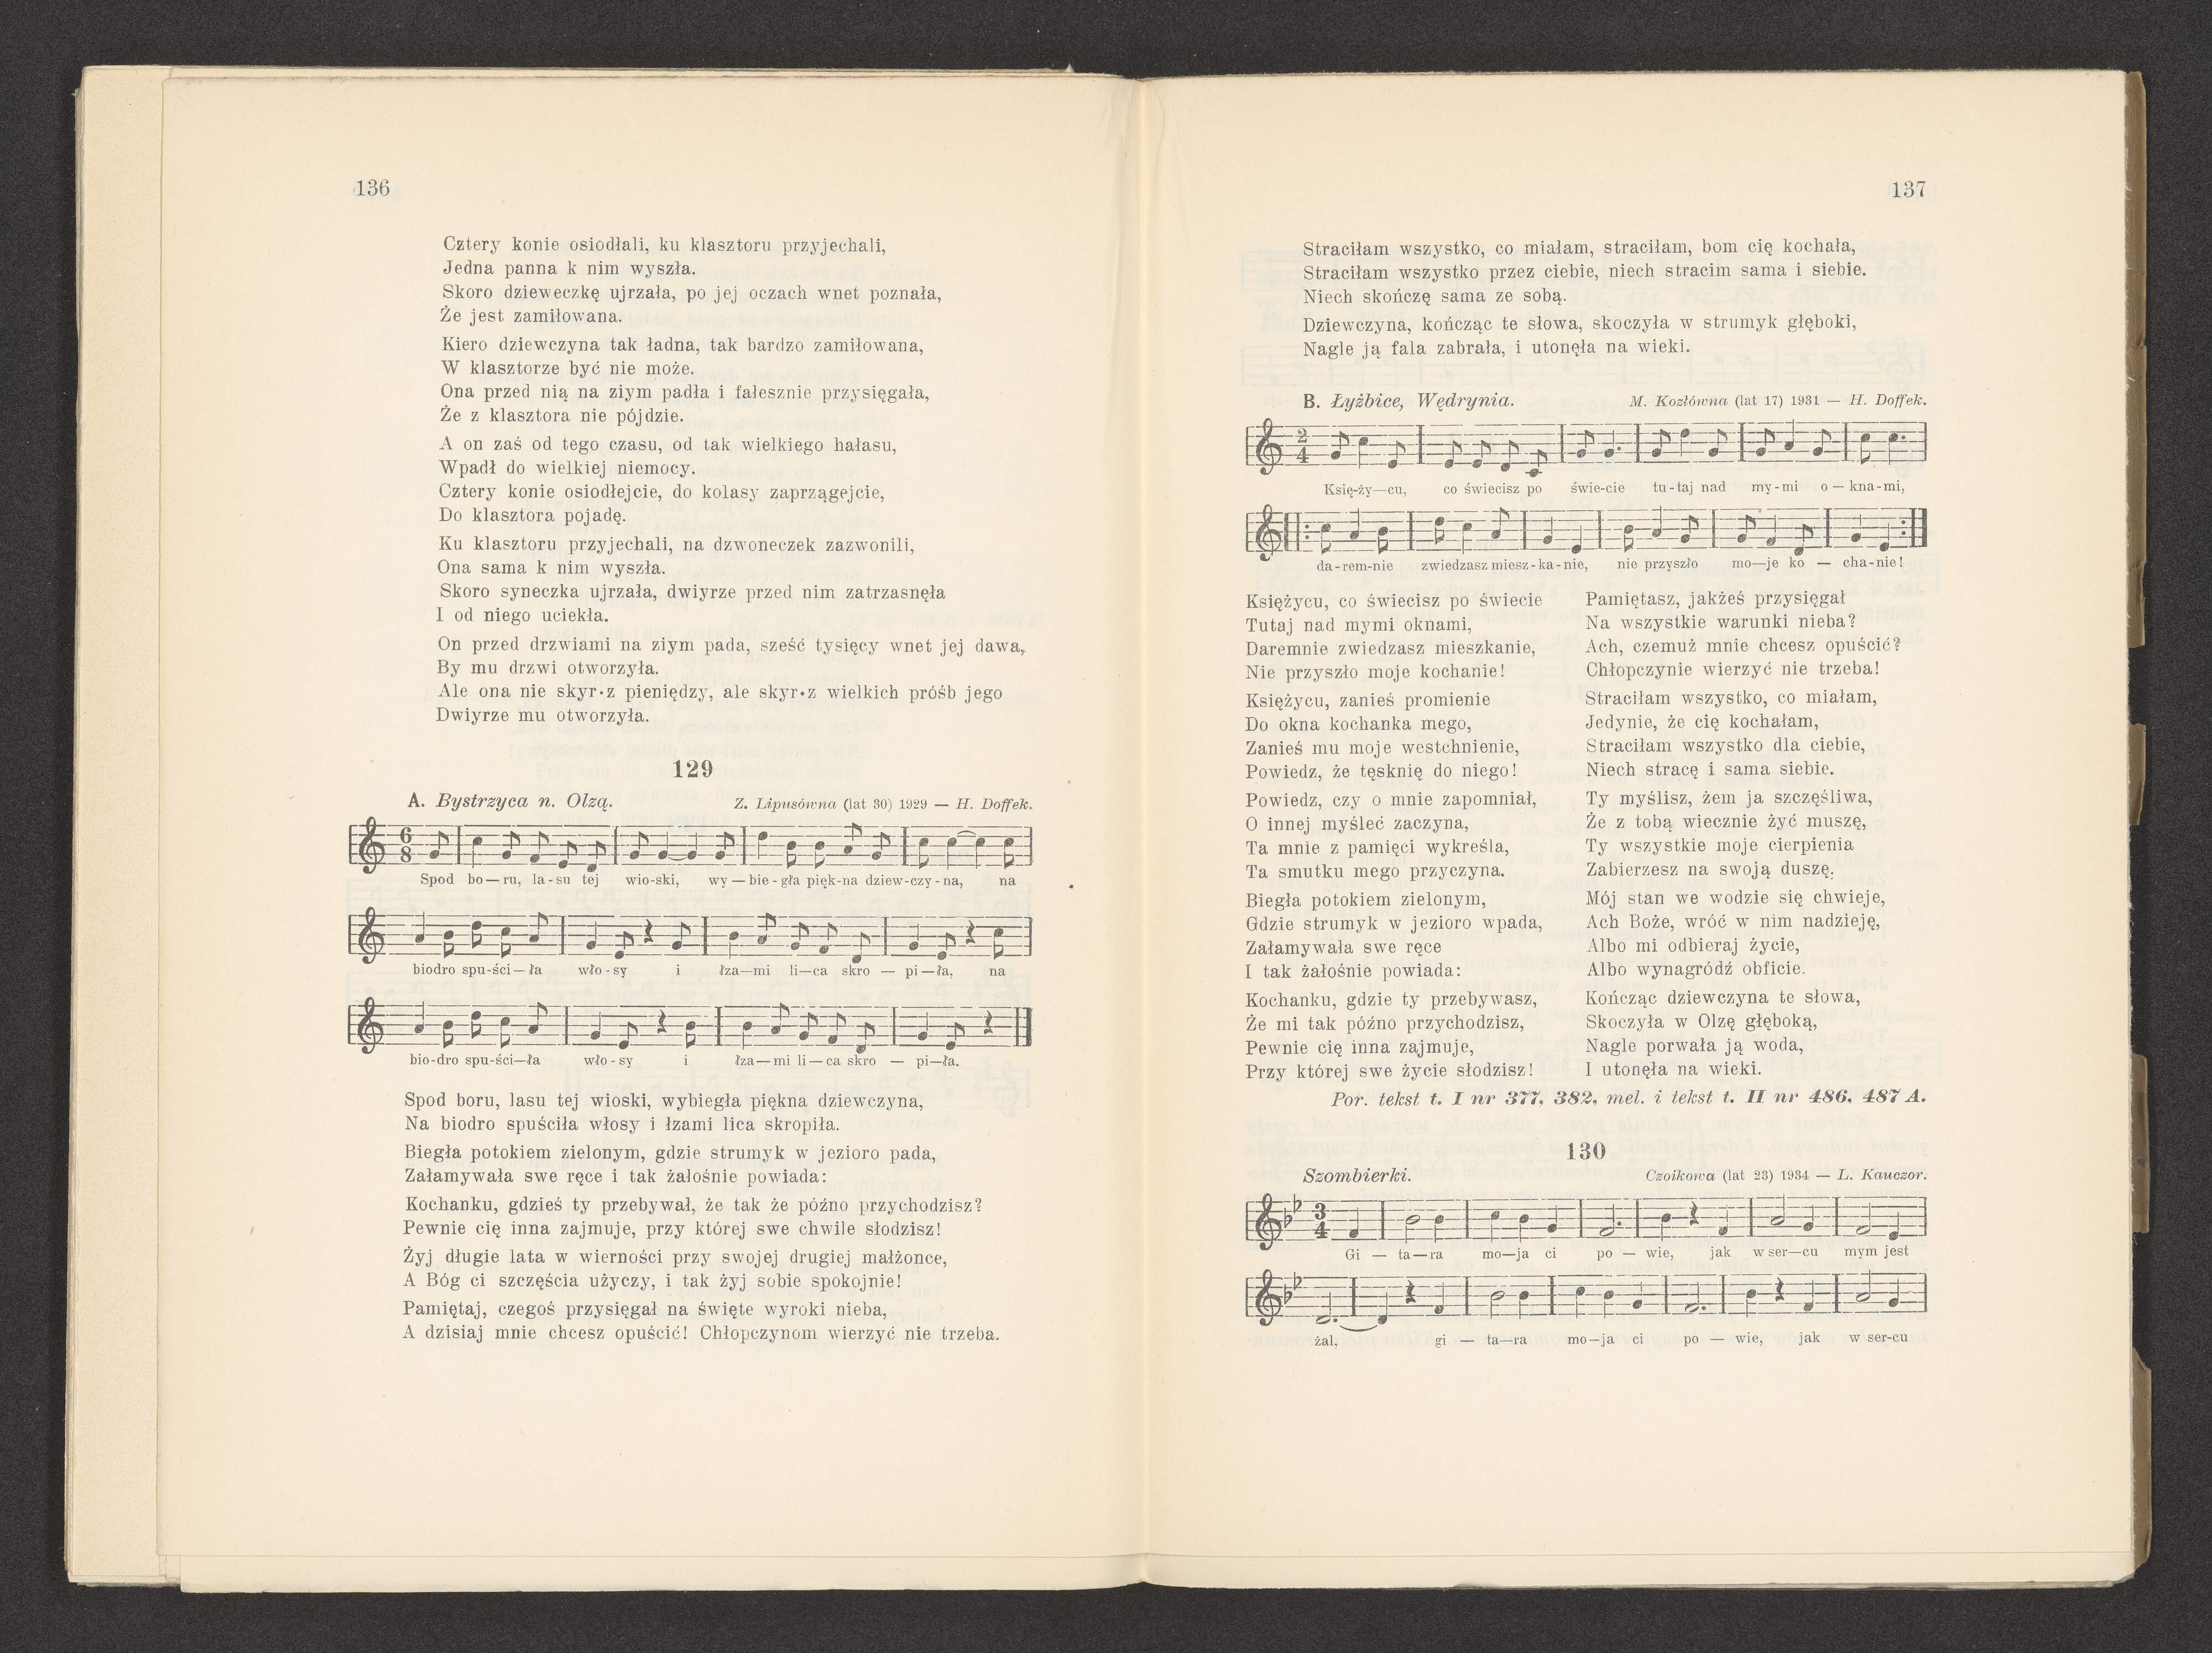 136
Cztery konie osiodłali, ku klasztoru przyjechali,
Jedna panna k nim wyszła.
Skoro dzieweczkę ujrzała, po jej oczach wnet poznała,
Że jest zamiłowana.
Kiero dziewczyna tak ładna, tak bardzo zamiłowana,
W klasztorze być nie może.
Ona przed nią na ziym padła i fałesznie przysięgała,
Że z klasztora nie pójdzie.
A on zaś od tego czasu, od tak wielkiego hałasu,
Wpadł do wielkiej niemocy.
Cztery konie osiodłejcie, do kolasy zaprzągejcie,
Do klasztora pojadę.
Ku klasztoru przyjechali, na dzwoneczek zazwonili,
Ona sama k nim wyszła.
Skoro syneczka ujrzała, dwiyrze przed nim zatrzasnęła
I od niego uciekła.
On przed drzwiami na ziym pada, sześć tysięcy wnet jej dawa,
By mu drzwi otworzyła.
Ale ona nie skyr·z pieniędzy, ale skyr·z wielkich próśb jego
Dwiyrze mu otworzyła.
129
A. Bystrzyca n. Olzą. Z. Lipusówna (lat 30) 1929 — H. Doffek.
6 8
Spod bo—ru, la-su tej wio-ski, wy—bie-gła pięk-na dziew-czy-na, na
biodro spu-ści—ła wło-sy i łza—mi li—ca skro — pi—ła, na
bio-dro spu-ści—ła wło-sy i łza—mi li—ca skro — pi—ła.
Spod boru, lasu tej wioski, wybiegła piękna dziewczyna,
Na biodro spuściła włosy i łzami lica skropiła.
Biegła potokiem zielonym, gdzie strumyk w jezioro pada,
Załamywała swe ręce i tak żałośnie powiada:
Kochanku, gdzieś ty przebywał, że tak że późno przychodzisz?
Pewnie cię inna zajmuje, przy której swe chwile słodzisz!
Żyj długie lata w wierności przy swojej drugiej małżonce,
A Bóg ci szczęścia użyczy, i tak żyj sobie spokojnie!
Pamiętaj, czegoś przysięgał na święte wyroki nieba,
A dzisiaj mnie chcesz opuścić! Chłopczynom wierzyć nie trzeba.
137
Straciłam wszystko, co miałam, straciłam, bom cię kochała,
Straciłam wszystko przez ciebie, niech stracim sama i siebie.
Niech skończę sama ze sobą.
Dziewczyna, kończąc te słowa, skoczyła w strumyk głęboki,
Nagle ją fala zabrała, i utonęła na wieki.
B. Łyżbice, Wędrynia. M. Kozłówna (lat 17) 1931 — H. Doffek.
2 4
Księ-ży—cu, co świecisz po świe-cie tu-taj nad my-mi o—kna-mi,
da-rem-nie zwiedzasz miesz-ka-nie, nie przyszło mo—je ko — cha-nie!
Księżycu, co świecisz po świecie
Tutaj nad mymi oknami,
Daremnie zwiedzasz mieszkanie,
Nie przyszło moje kochanie!
Księżycu, zanieś promienie
Do okna kochanka mego,
Zanieś mu moje westchnienie,
Powiedz, że tęsknię do niego!
Powiedz, czy o mnie zapomniał,
O innej myśleć zaczyna,
Ta mnie z pamięci wykreśla,
Ta smutku mego przyczyna.
Biegła potokiem zielonym,
Gdzie strumyk w jezioro wpada,
Załamywała swe ręce
I tak żałośnie powiada:
Kochanku, gdzie ty przebywasz,
Że mi tak późno przychodzisz,
Pewnie cię inna zajmuje,
Przy której swe życie słodzisz!
Pamiętasz, jakżeś przysięgał
Na wszystkie warunki nieba?
Ach, czemuż mnie chcesz opuścić?
Chłopczynie wierzyć nie trzeba!
Straciłam wszystko, co miałam,
Jedynie, że cię kochałam,
Straciłam wszystko dla ciebie,
Niech stracę i sama siebie.
Ty myślisz, żem ja szczęśliwa,
Że z tobą wiecznie żyć muszę,
Ty wszystkie moje cierpienia
Zabierzesz na swoją duszę.
Mój stan we wodzie się chwieje,
Ach Boże, wróć w nim nadzieję,
Albo mi odbieraj życie,
Albo wynagródź obficie.
Kończąc dziewczyna te słowa,
Skoczyła w Olzę głęboką,
Nagle porwała ją woda,
I utonęła na wieki.
Por. tekst t. I nr 377, 382, mel. i tekst t. II nr 486, 487 A.
130
Szombierki. Czoikowa (lat 23) 1934 — L. Kauczor.
3 4
Gi — ta—ra mo—ja ci po — wie, jak w ser—cu mym jest
żal, gi — ta—ra mo—ja ci po — wie, jak w ser-cu